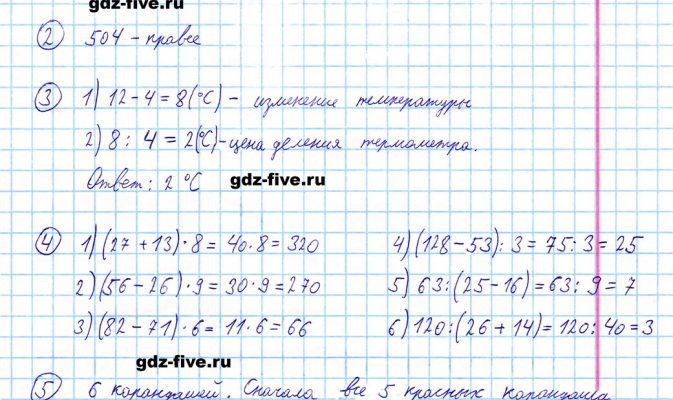 gdz-five.ru
2 504 - правее
3 1) 12 - 4 = 8 (°C) - изменение температуры
2) 8 : 4 = 2 (°C) - цена деления термометра.
Ответ: 2 °C
gdz-five.ru
4 1) (27 + 13) · 8 = 40 · 8 = 320
4) (128 - 53) : 3 = 75 : 3 = 25
2) (56 - 26) · 9 = 30 · 9 = 270
5) 63 : (25 - 16) = 63 : 9 = 7
3) (82 - 71) · 6 = 11 · 6 = 66
6) 120 : (26 + 14) = 120 : 40 = 3
gdz-five.ru
5 6 карандашей. Сначала все 5 красных карандаша